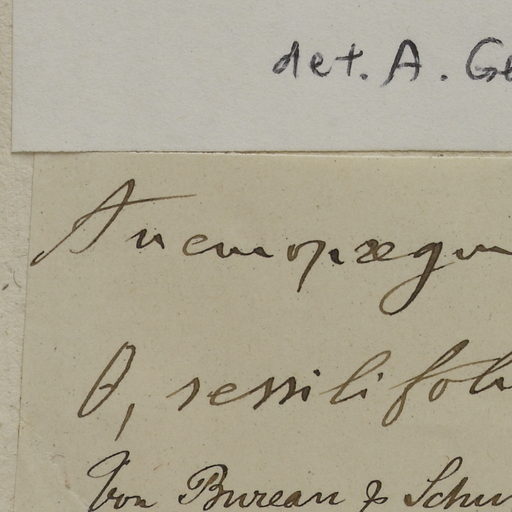 det. A. Ge
Anemopægm
θ, sessilifoli
Von Bureau & Schu